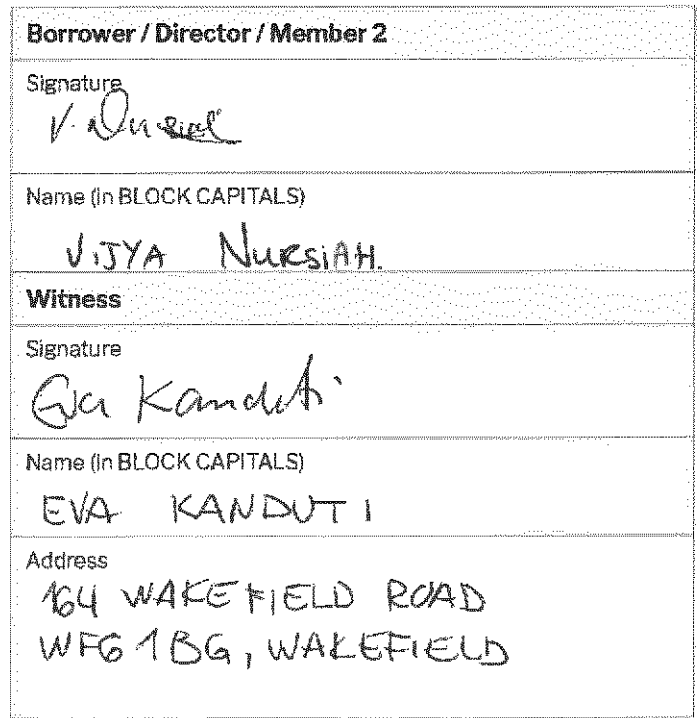 Borrower / Director / Member 2
Signature
V. Nursiah
Name (in BLOCK CAPITALS)
VIJYA NURSIAH.
Witness
Signature
Eva Kanduti
Name (in BLOCK CAPITALS)
EVA KANDUTI
Address
164 WAKEFIELD ROAD
WF6 1BG, WAKEFIELD